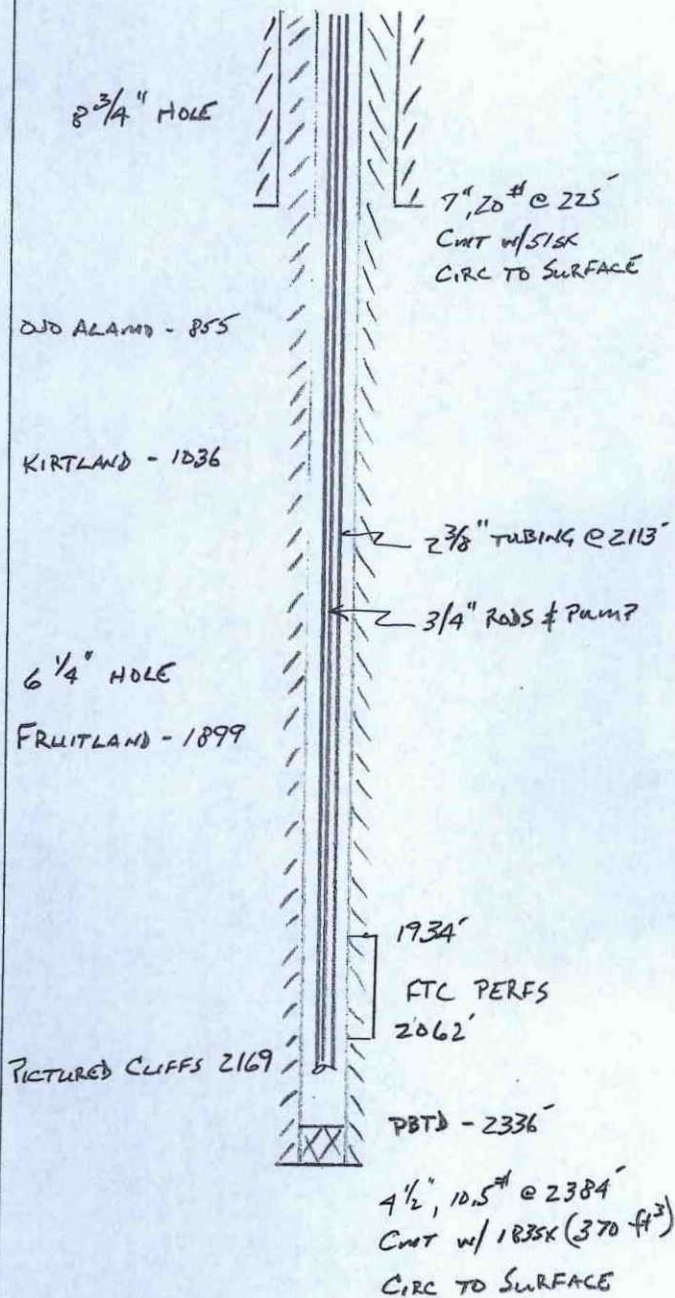 8 3/4" HOLE
7", 20# @ 225'
CMT w/ 51sx
CIRC TO SURFACE
OJO ALAMO - 855
KIRTLAND - 1036
2 3/8" TUBING @ 2113'
3/4" RODS & PUMP
6 1/4" HOLE
FRUITLAND - 1899
1934'
FTC PERFS
2062'
PICTURED CLIFFS 2169
PBTD - 2336'
4 1/2", 10.5# @ 2384'
CMT w/ 183sx (370 ft³)
CIRC TO SURFACE